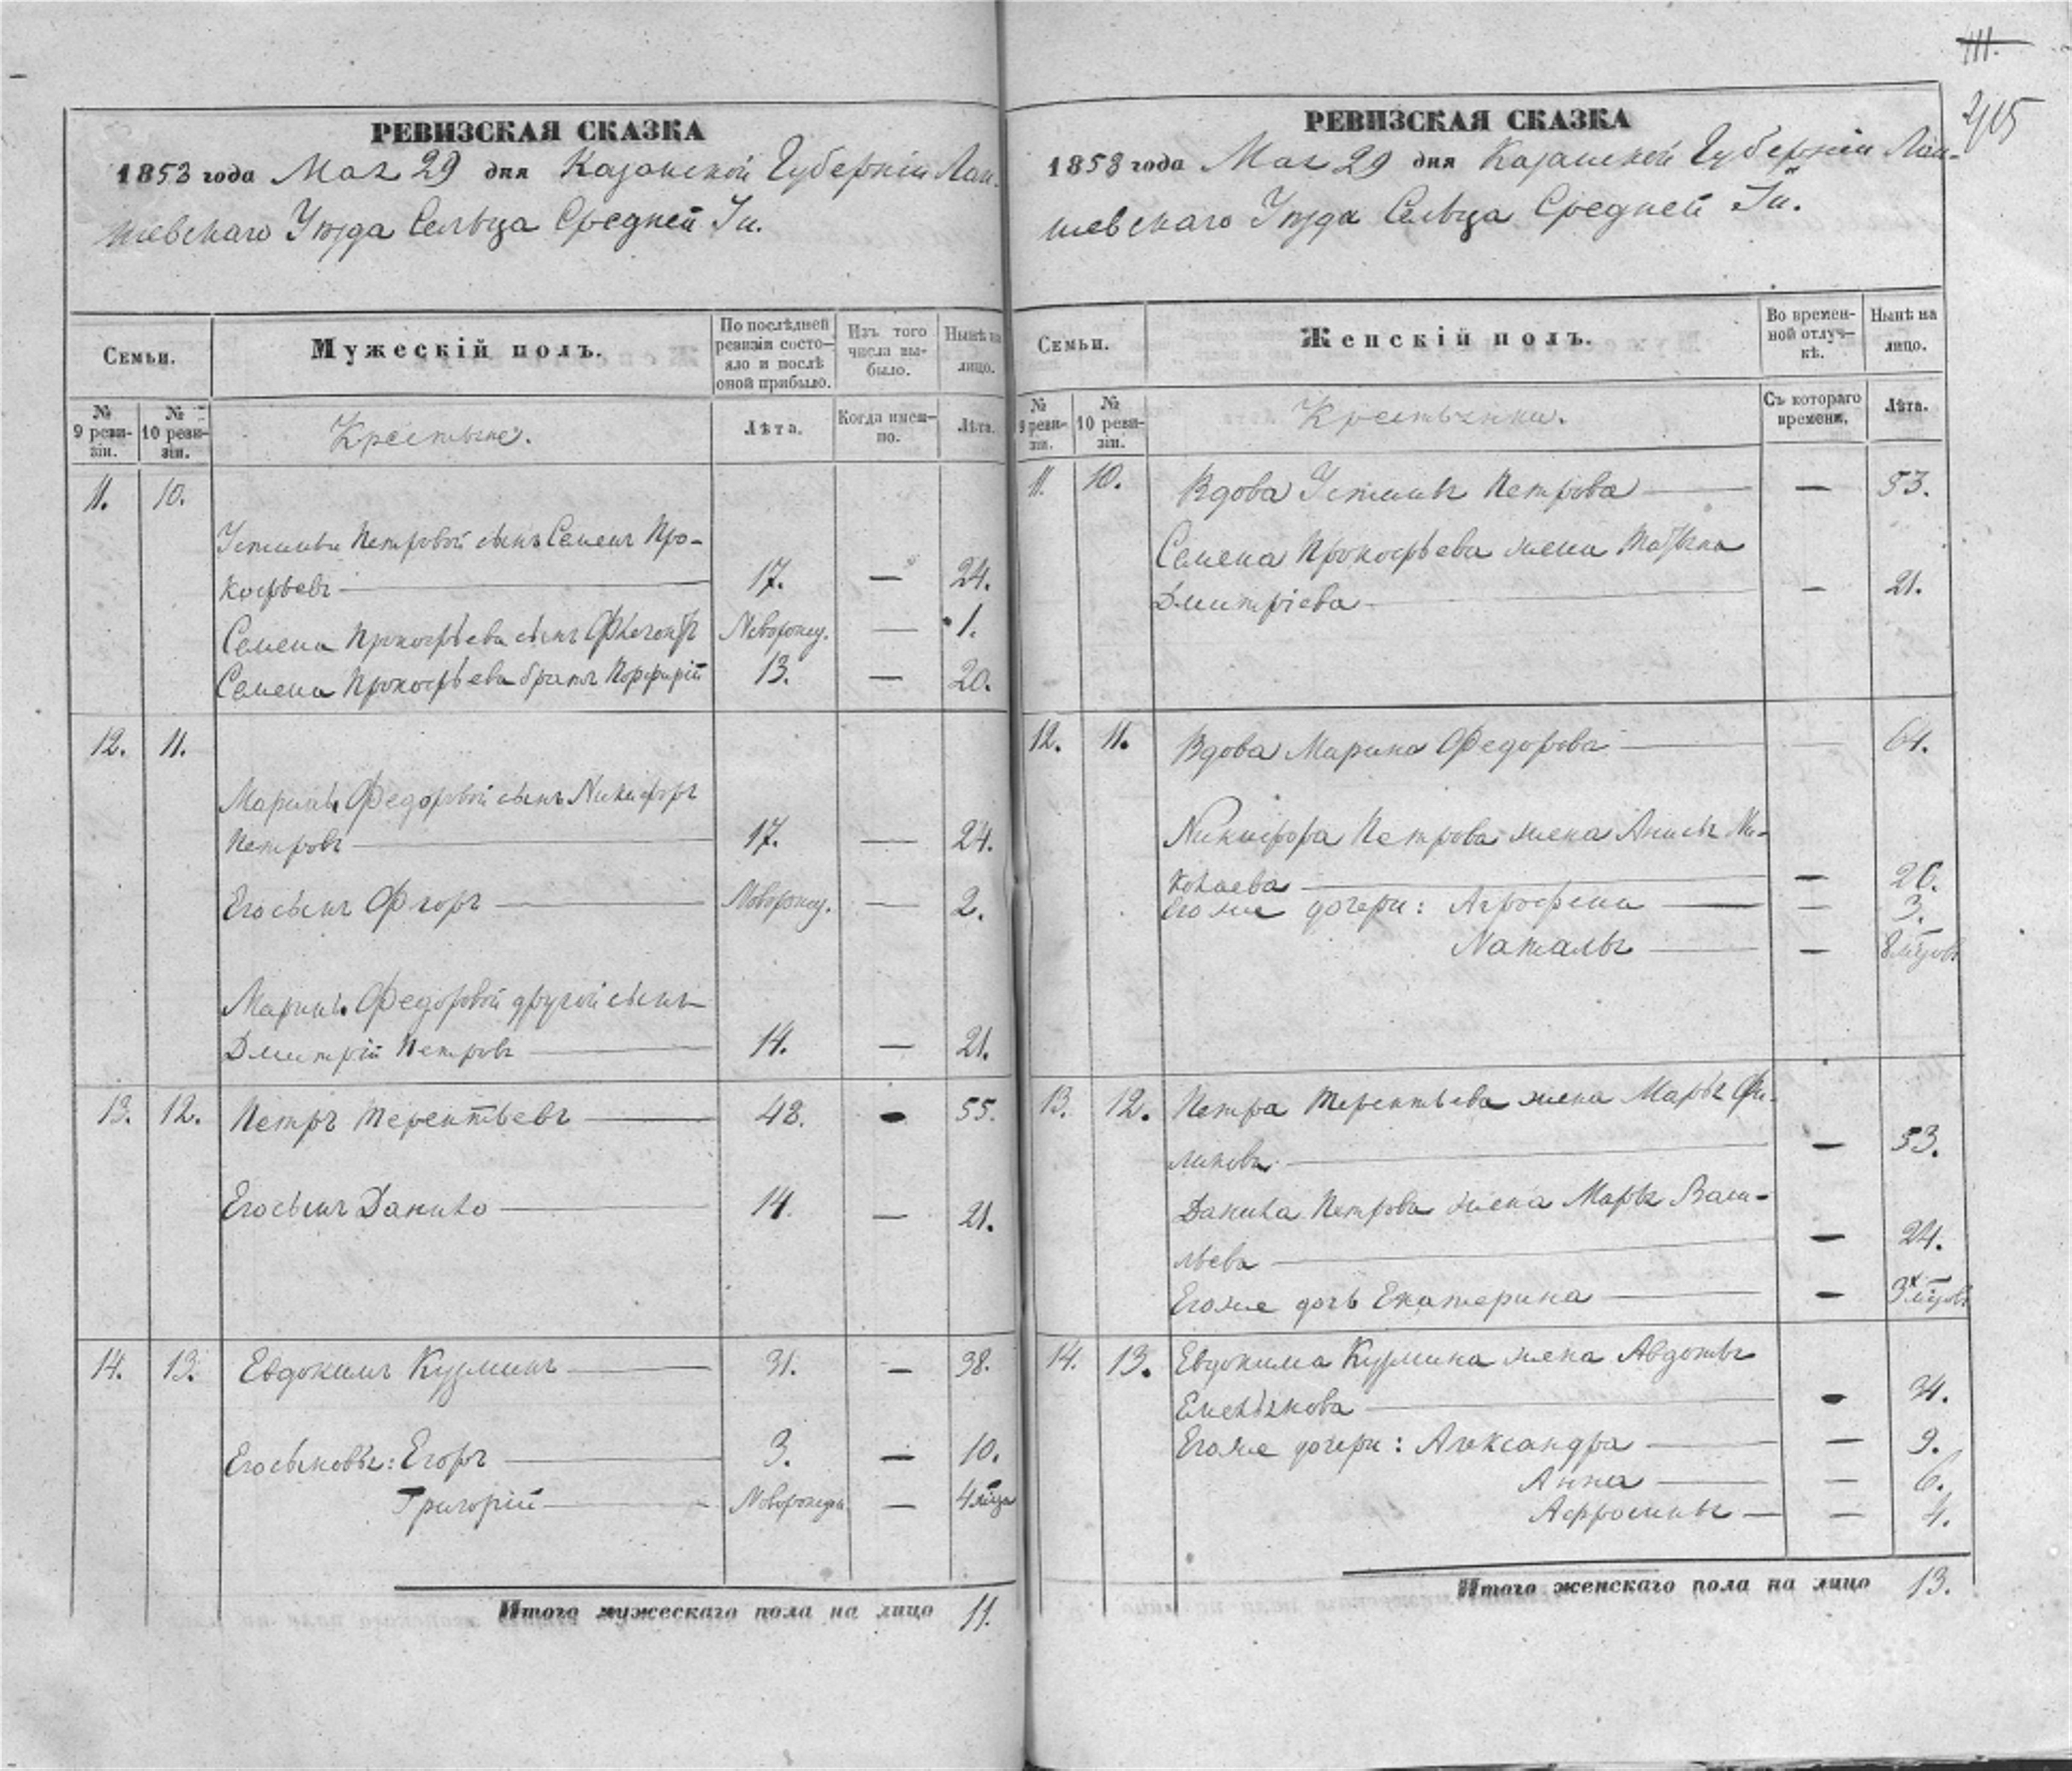 111.
215
РЕВИЗСКАЯ СКАЗКА
1858 года Мая 29 дня Казанской Губерніи Лаи-
шевскаго Уѣзда Сельца Средней Іи.
Семьи.
Мужескій полъ.
По послѣдней
ревизіи состо-
яло и послѣ
оной прибыло.
Изъ того
числа вы-
было.
Нынѣ на
лицо.
№
9 реви-
зіи.
№
10 реви-
зіи.
Крестьяне.
Лѣта.
Когда имен-
но.
Лѣта.
11. 10.
Устиньи Петровой сынъ Семенъ Про-
кофьевъ 17. — 24.
Семена Прокофьева сынъ Новорожд. — 1.
Семена Прокофьева братъ Порфирій 13. — 20.
12. 11.
Марины Федоровой сынъ Никифоръ
Петровъ 17. — 24.
Его сынъ Новорожд. — 2.
Марины Федоровой другой сынъ
Дмитрій Петровъ 14. — 21.
13. 12. Петръ Терентьевъ 48. — 55.
Его сынъ Данило 14. — 21.
14. 13. Евдокимъ Кузминъ 31. — 38.
Его сыновья: Егоръ 3. — 10.
Григорій Новорожд. — 4 мѣца
Итого мужескаго пола на лицо 11.
РЕВИЗСКАЯ СКАЗКА
1858 года Мая 29 дня Казанской Губерніи Лаи-
шевскаго Уѣзда Сельца Средней Іи.
Семьи.
Женскій полъ.
Во времен-
ной отлуч-
кѣ.
Нынѣ на
лицо.
№
9 реви-
зіи.
№
10 реви-
зіи.
Крестьянки.
Съ котораго
времени.
Лѣта.
11. 10. Вдова Устинья Петрова — 53.
Семена Прокофьева жена Татьяна
Дмитріева — 21.
12. 11. Вдова Марина Федорова — 64.
Никифора Петрова жена Анисья Ни-
колаева — 26.
Его же дочери: Агрофена — 3.
Наталья — 8 мѣцовъ
13. 12. Петра Терентьева жена Марья Фи-
липова — 53.
Данила Петрова жена Марья Васи-
льева — 24.
Его же дочь Екатерина — 3х мѣцовъ
14. 13. Евдокима Кузмина жена Авдотья
Емельянова — 34.
Его же дочери: Александра — 9.
Анна — 6.
Афросинья — 4.
Итого женскаго пола на лицо 13.